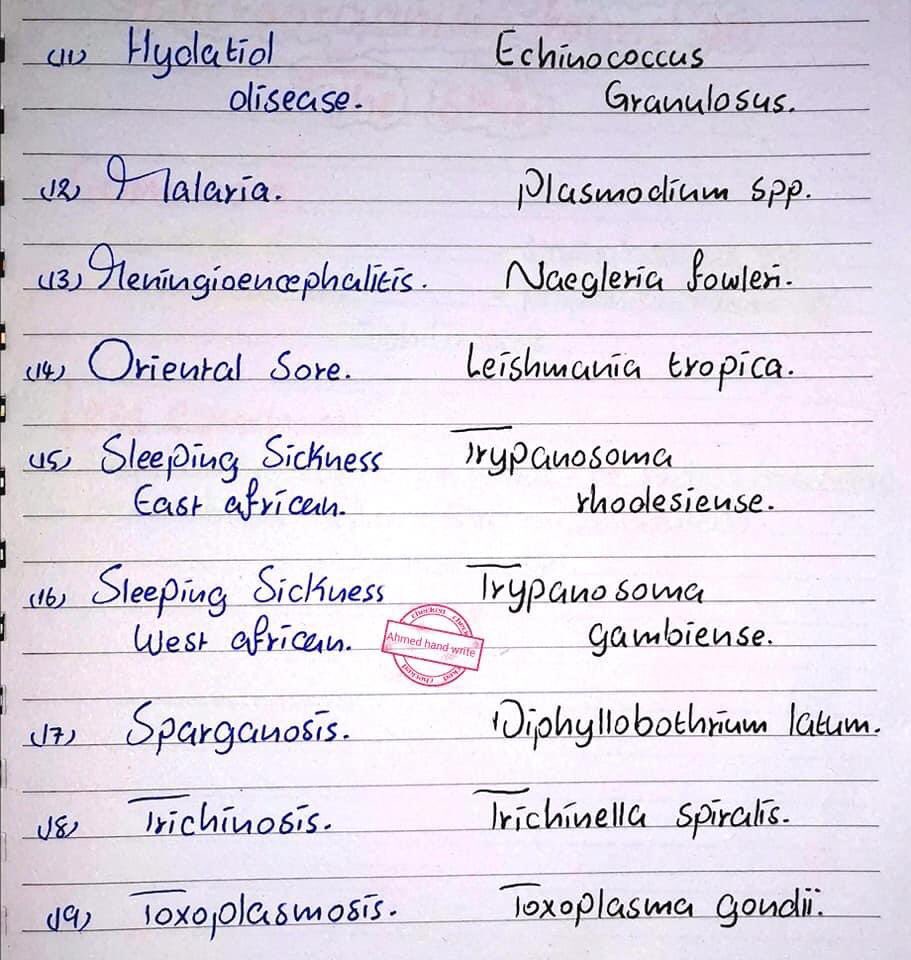 (11) Hydatid Echinococcus
disease. Granulosus.
(12) Malaria. Plasmodium spp.
(13) Meningioencephalitis. Naegleria fowleri.
(14) Oriental Sore. Leishmania tropica.
(15) Sleeping Sickness Trypanosoma
East african. rhodesiense.
(16) Sleeping Sickness Trypanosoma
West african. gambiense.
checked
Ahmed hand write
checked
(17) Sparganosis. Diphyllobothrium latum.
(18) Trichinosis. Trichinella spiralis.
(19) Toxoplasmosis. Toxoplasma gondii.